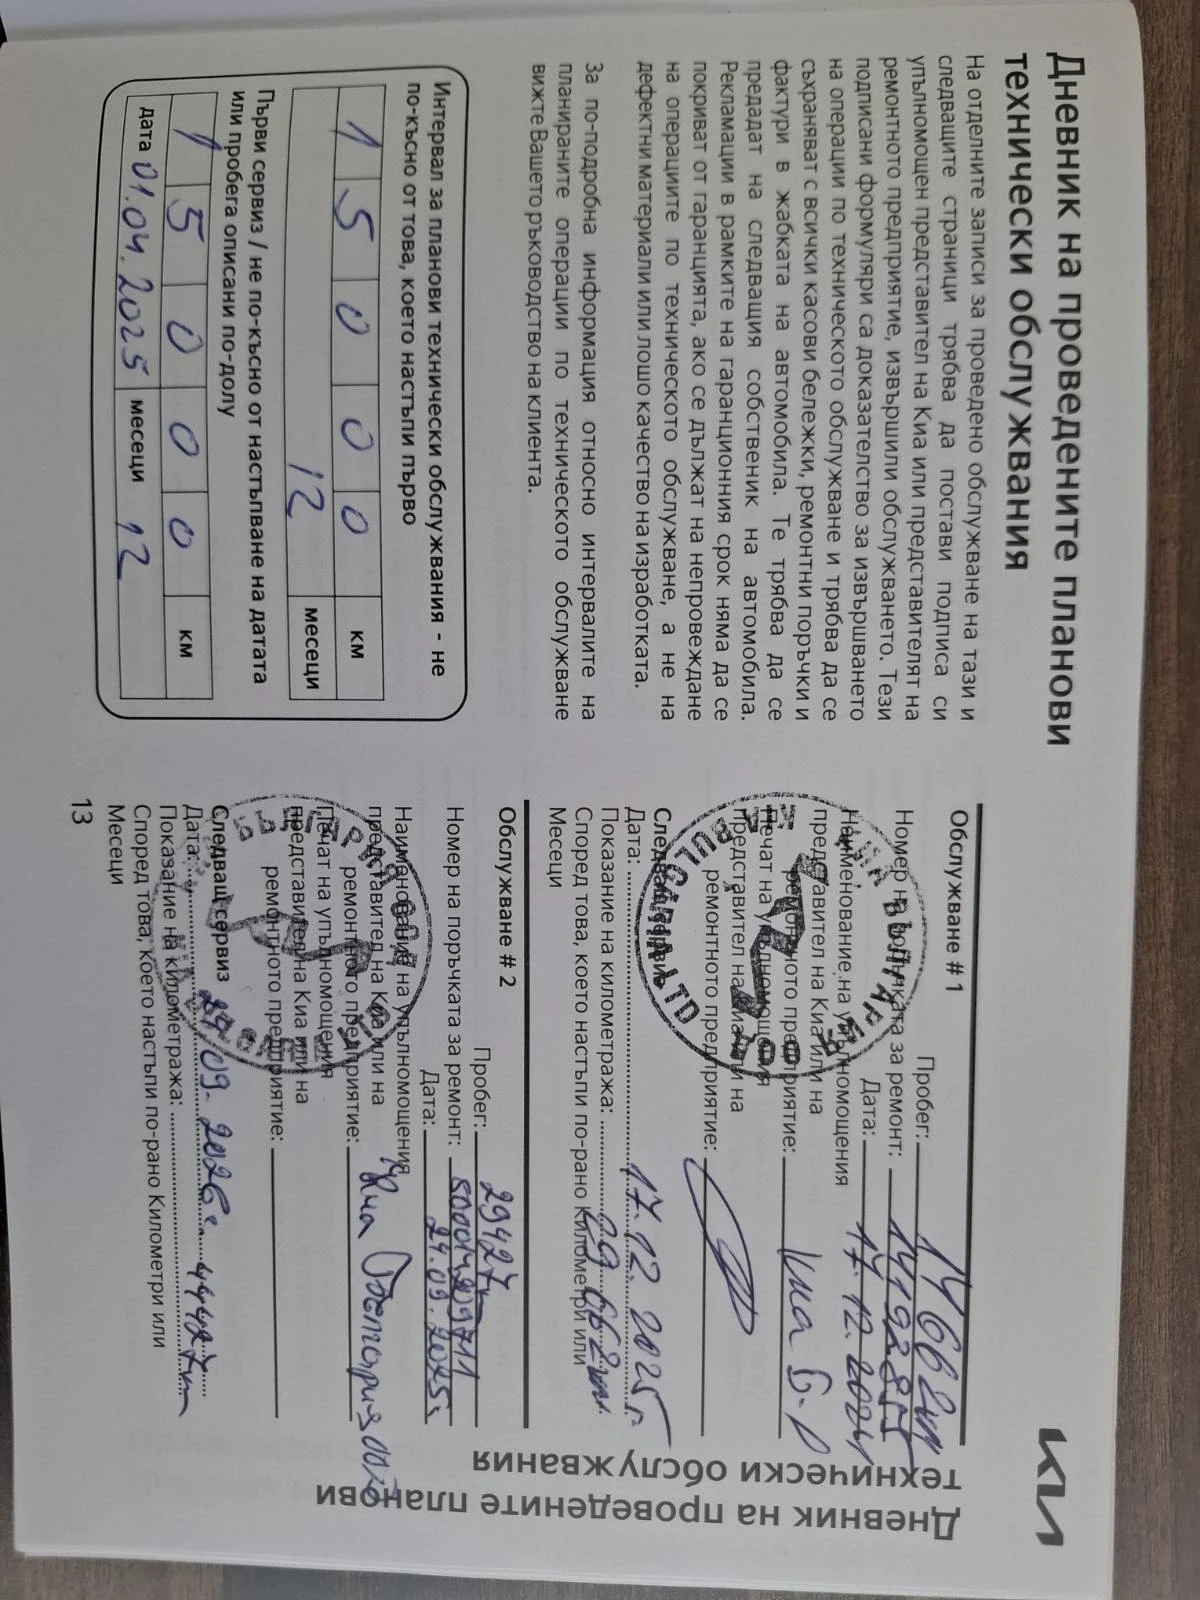 Дневник на проведените планови
технически обслужвания
На отделните записи за проведено обслужване на тази и
следващите страници трябва да постави подписа си
упълномощен представител на Киа или представителят на
ремонтното предприятие, извършили обслужването. Тези
подписани формуляри са доказателство за извършването
на операции по техническото обслужване и трябва да се
съхраняват с всички касови бележки, ремонтни поръчки и
фактури в жабката на автомобила. Те трябва да се
предадат на следващия собственик на автомобила.
Рекламации в рамките на гаранционния срок няма да се
покриват от гаранцията, ако се дължат на непровеждане
на операциите по техническото обслужване, а не на
дефектни материали или лошо качество на изработката.
За по-подробна информация относно интервалите на
планираните операции по техническото обслужване
вижте Вашето ръководство на клиента.
Интервал за планови технически обслужвания - не
по-късно от това, което настъпи първо
1 5 0 0 0 км
12 месеци
Първи сервиз / не по-късно от настъпване на датата
или пробега описани по-долу
1 5 0 0 0 км
дата 01.04.2025 месеци 12
KIA
Обслужване # 1
Пробег:
Номер на поръчката за ремонт:
Дата: 17.12.2024
Наименование на упълномощения
представител на Киа или на
ремонтното предприятие: Киа
Печат на упълномощения
представител на Киа или на
ремонтното предприятие:
Следващ сервиз
Дата: 17.12.2025г.
Показание на километража:
Според това, което настъпи по-рано Километри или
Месеци
Обслужване # 2
Пробег: 29427
Номер на поръчката за ремонт:
Дата: 24.09.2025г
Наименование на упълномощения
представител на Киа или на
ремонтното предприятие: Киа България ООД
Печат на упълномощения
представител на Киа или на
ремонтното предприятие:
Следващ сервиз
Дата: 24.09.2026г.
Показание на километража: 44427км
Според това, което настъпи по-рано Километри или
Месеци
13
Дневник на проведените планови
технически обслужвания